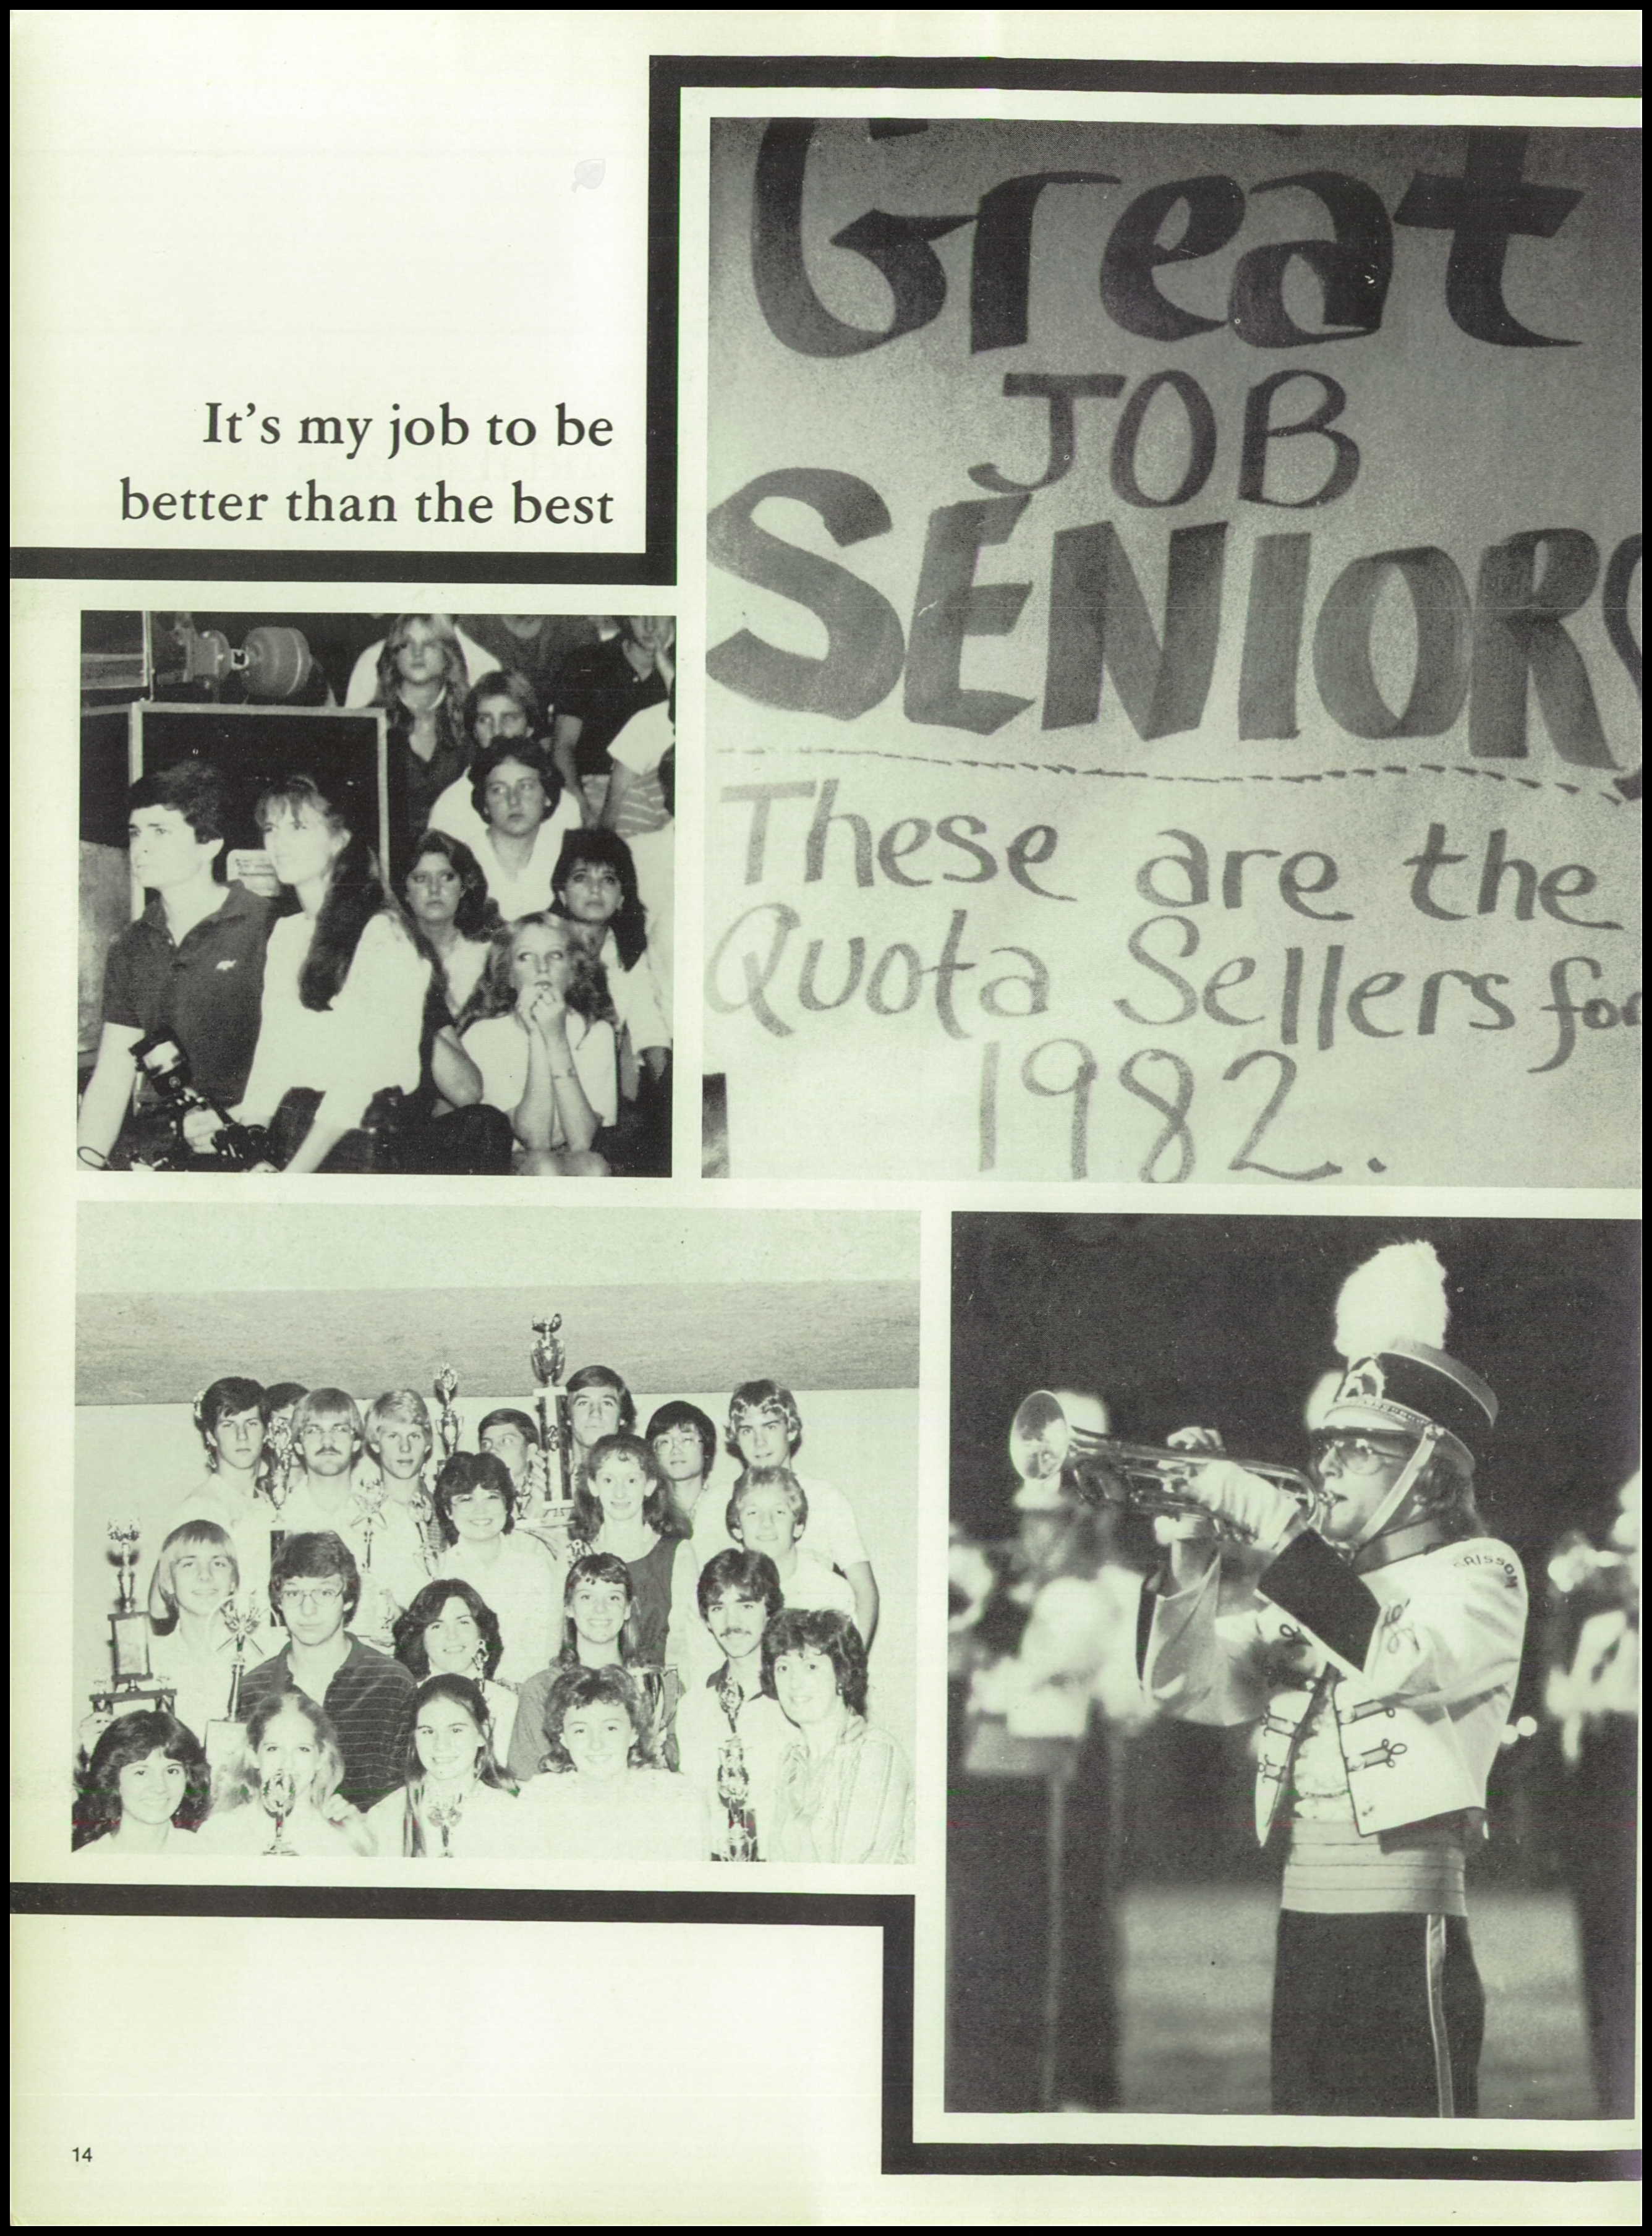 It's my job to be
better than the best
Great
JOB
SENIORS
These are the
Quota Sellers for
1982.
GRISSOM
14